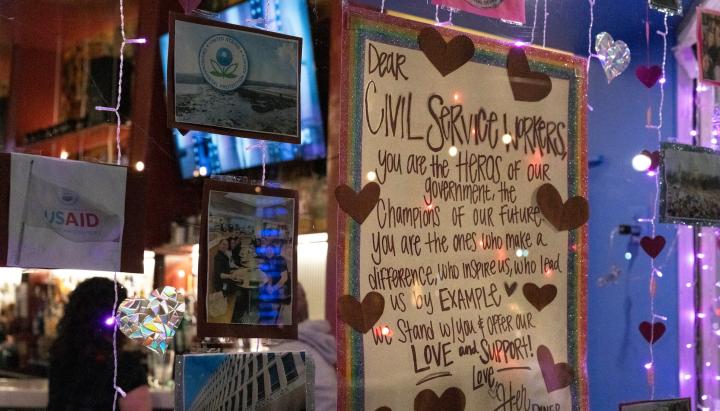 USAID
DEAR
CIVIL SERVICE WORKERS,
you are the HEROS of our
government, the
Champions of our future
you are the ones who make a
difference, who inspire us, who lead
us by EXAMPLE
we Stand w/you & OFFER OUR
LOVE and SUPPORT!
Love
Her DINER